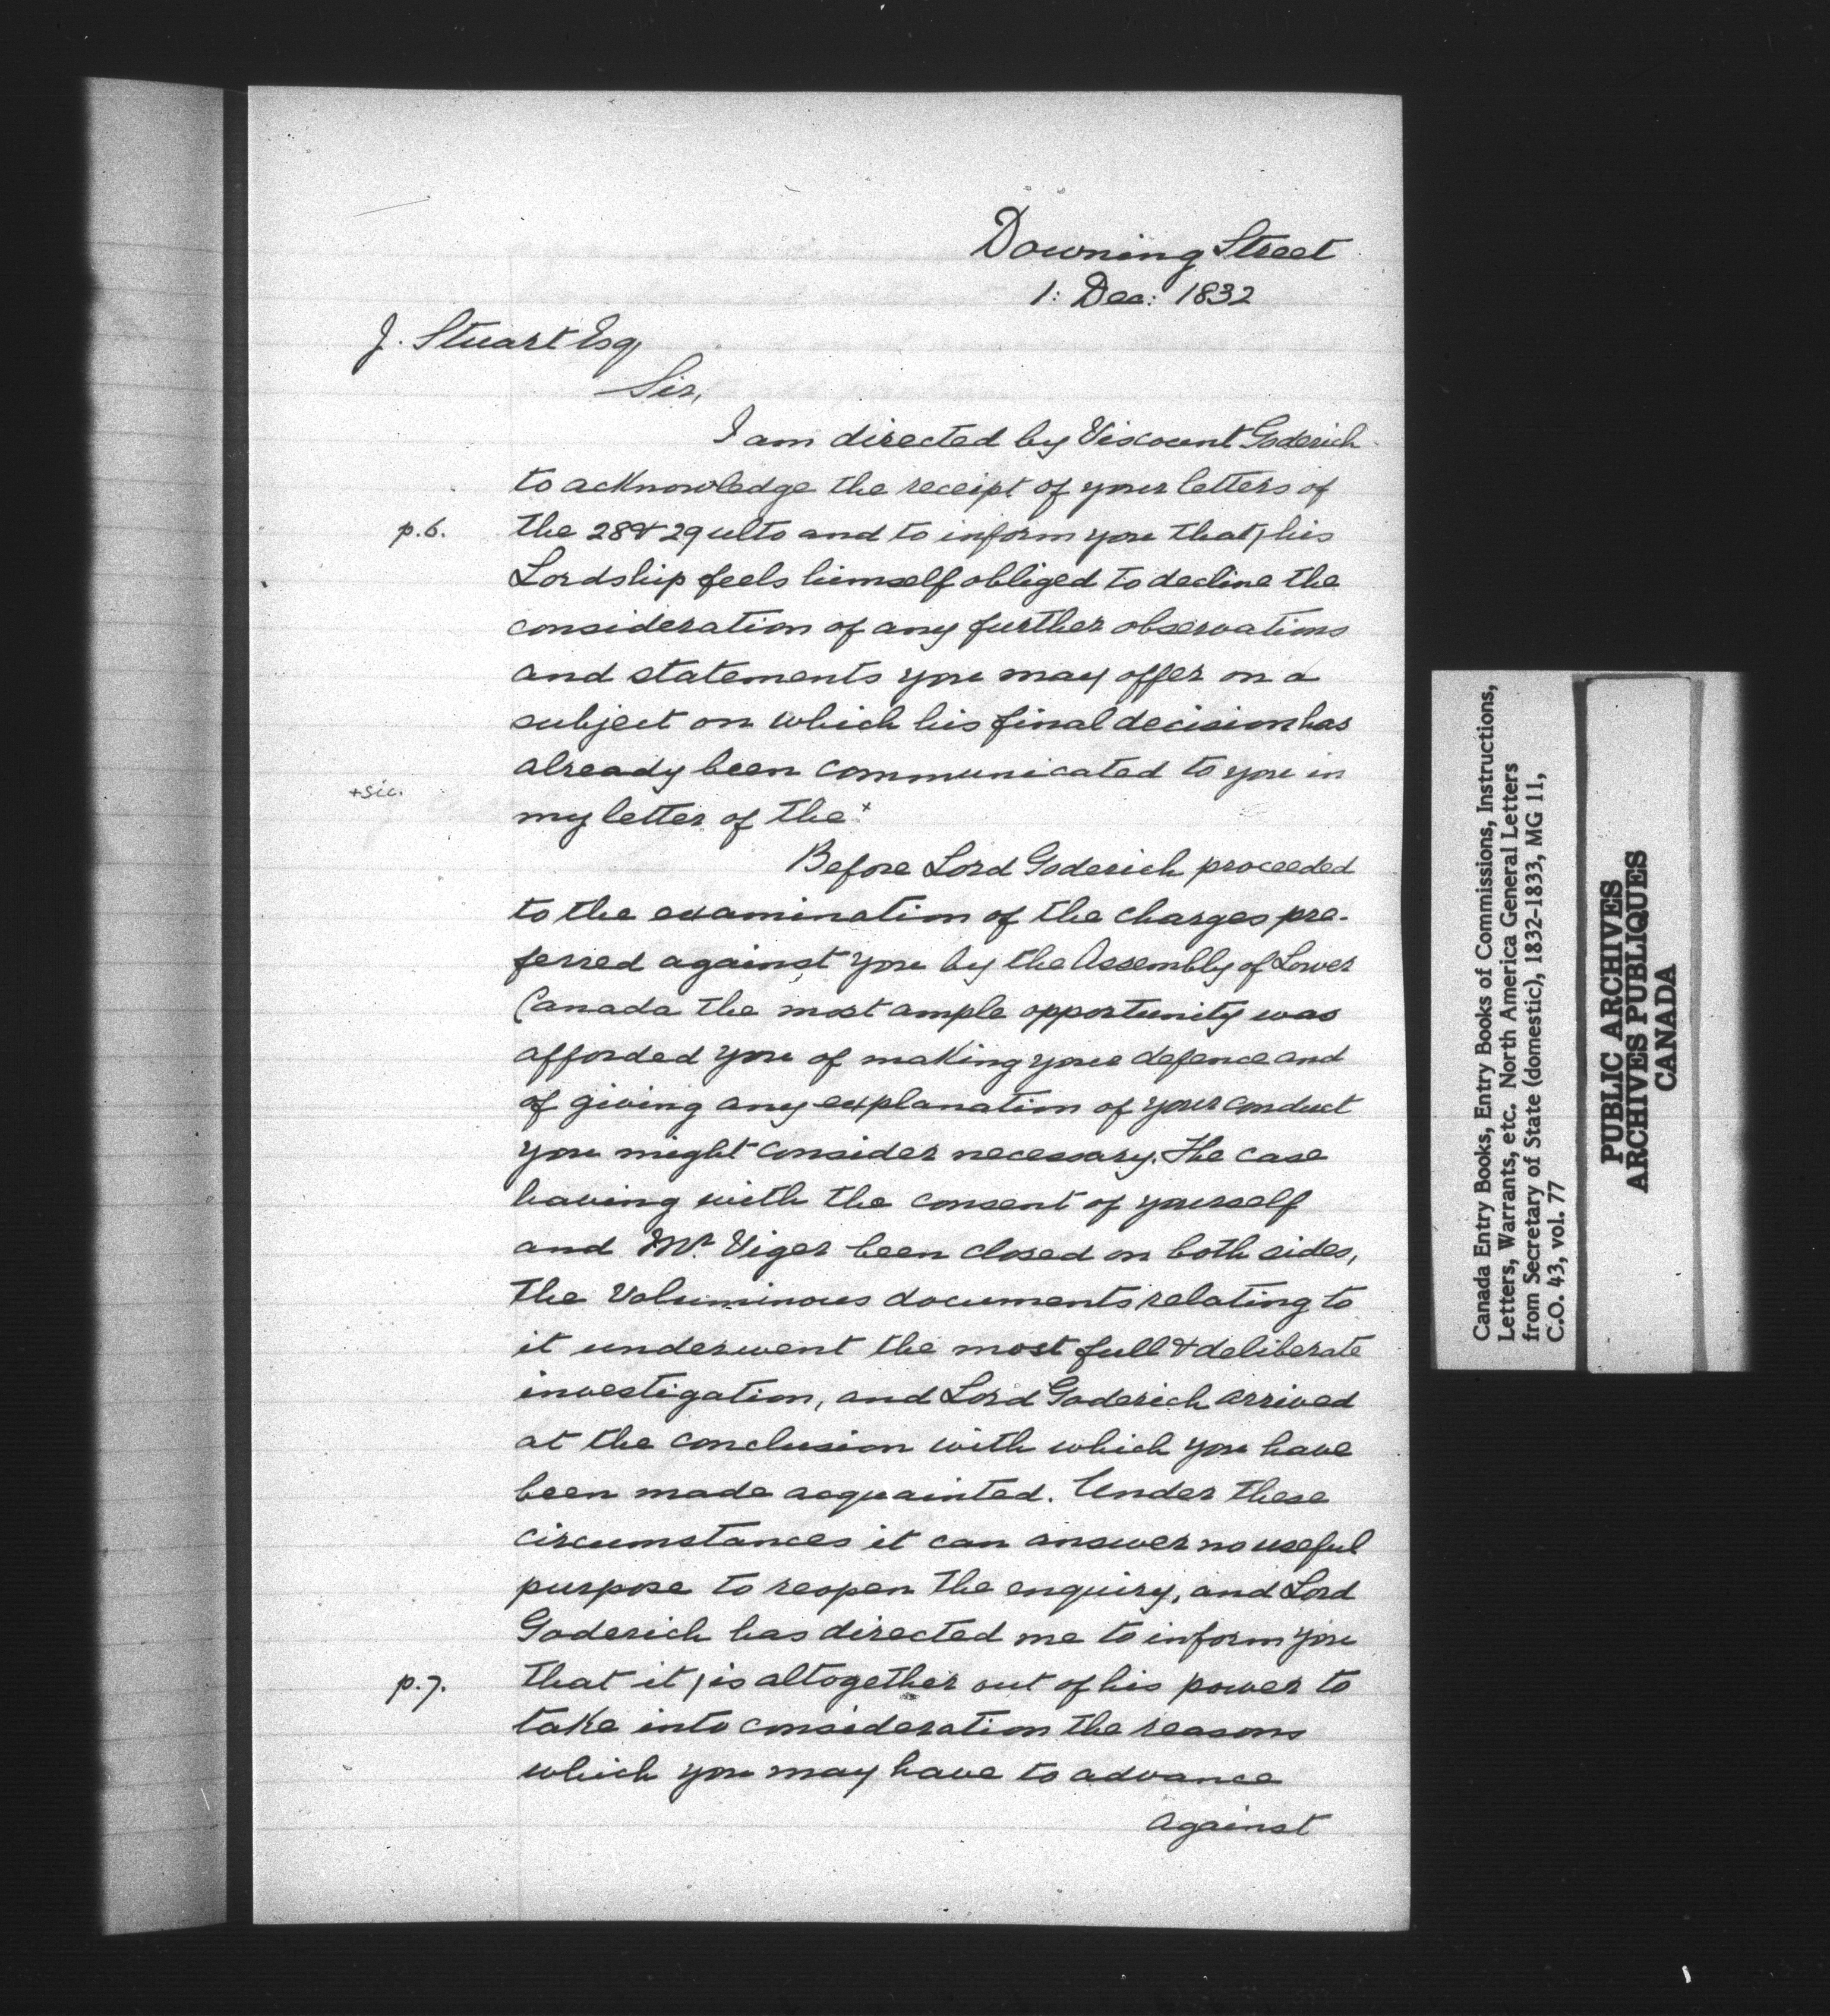 Downing Street
1: Dec: 1832
J. Stuart Esq
Sir,
I am directed by Viscount Goderich
to acknowledge the receipt of your letters of
p.6. the 28 & 29 ulto and to inform you that, his
Lordship feels himself obliged to decline the
consideration of any further observations
and statements you may offer on a
subject on which his final decision has
already been communicated to you in
+sic.
my letter of the +
Before Lord Goderich proceeded
to the examination of the charges pre-
ferred against you by the Assembly of Lower
Canada the most ample opportunity was
afforded you of making your defence and
of giving any explanation of your conduct
you might consider necessary. The case
having with the consent of yourself
and Mr. Viger been closed on both sides,
the voluminous documents relating to
it underwent the most full & deliberate
investigation, and Lord Goderich arrived
at the conclusion with which you have
been made acquainted. Under these
circumstances it can answer no useful
purpose to reopen the enquiry, and Lord
Goderich has directed me to inform you
p.7. that it, is altogether out of his power to
take into consideration the reasons
which you may have to advance
against
Canada Entry Books, Entry Books of Commissions, Instructions,
Letters, Warrants, etc. North America General Letters
from Secretary of State (domestic), 1832-1833, MG 11,
C.O. 43, vol. 77
PUBLIC ARCHIVES
ARCHIVES PUBLIQUES
CANADA